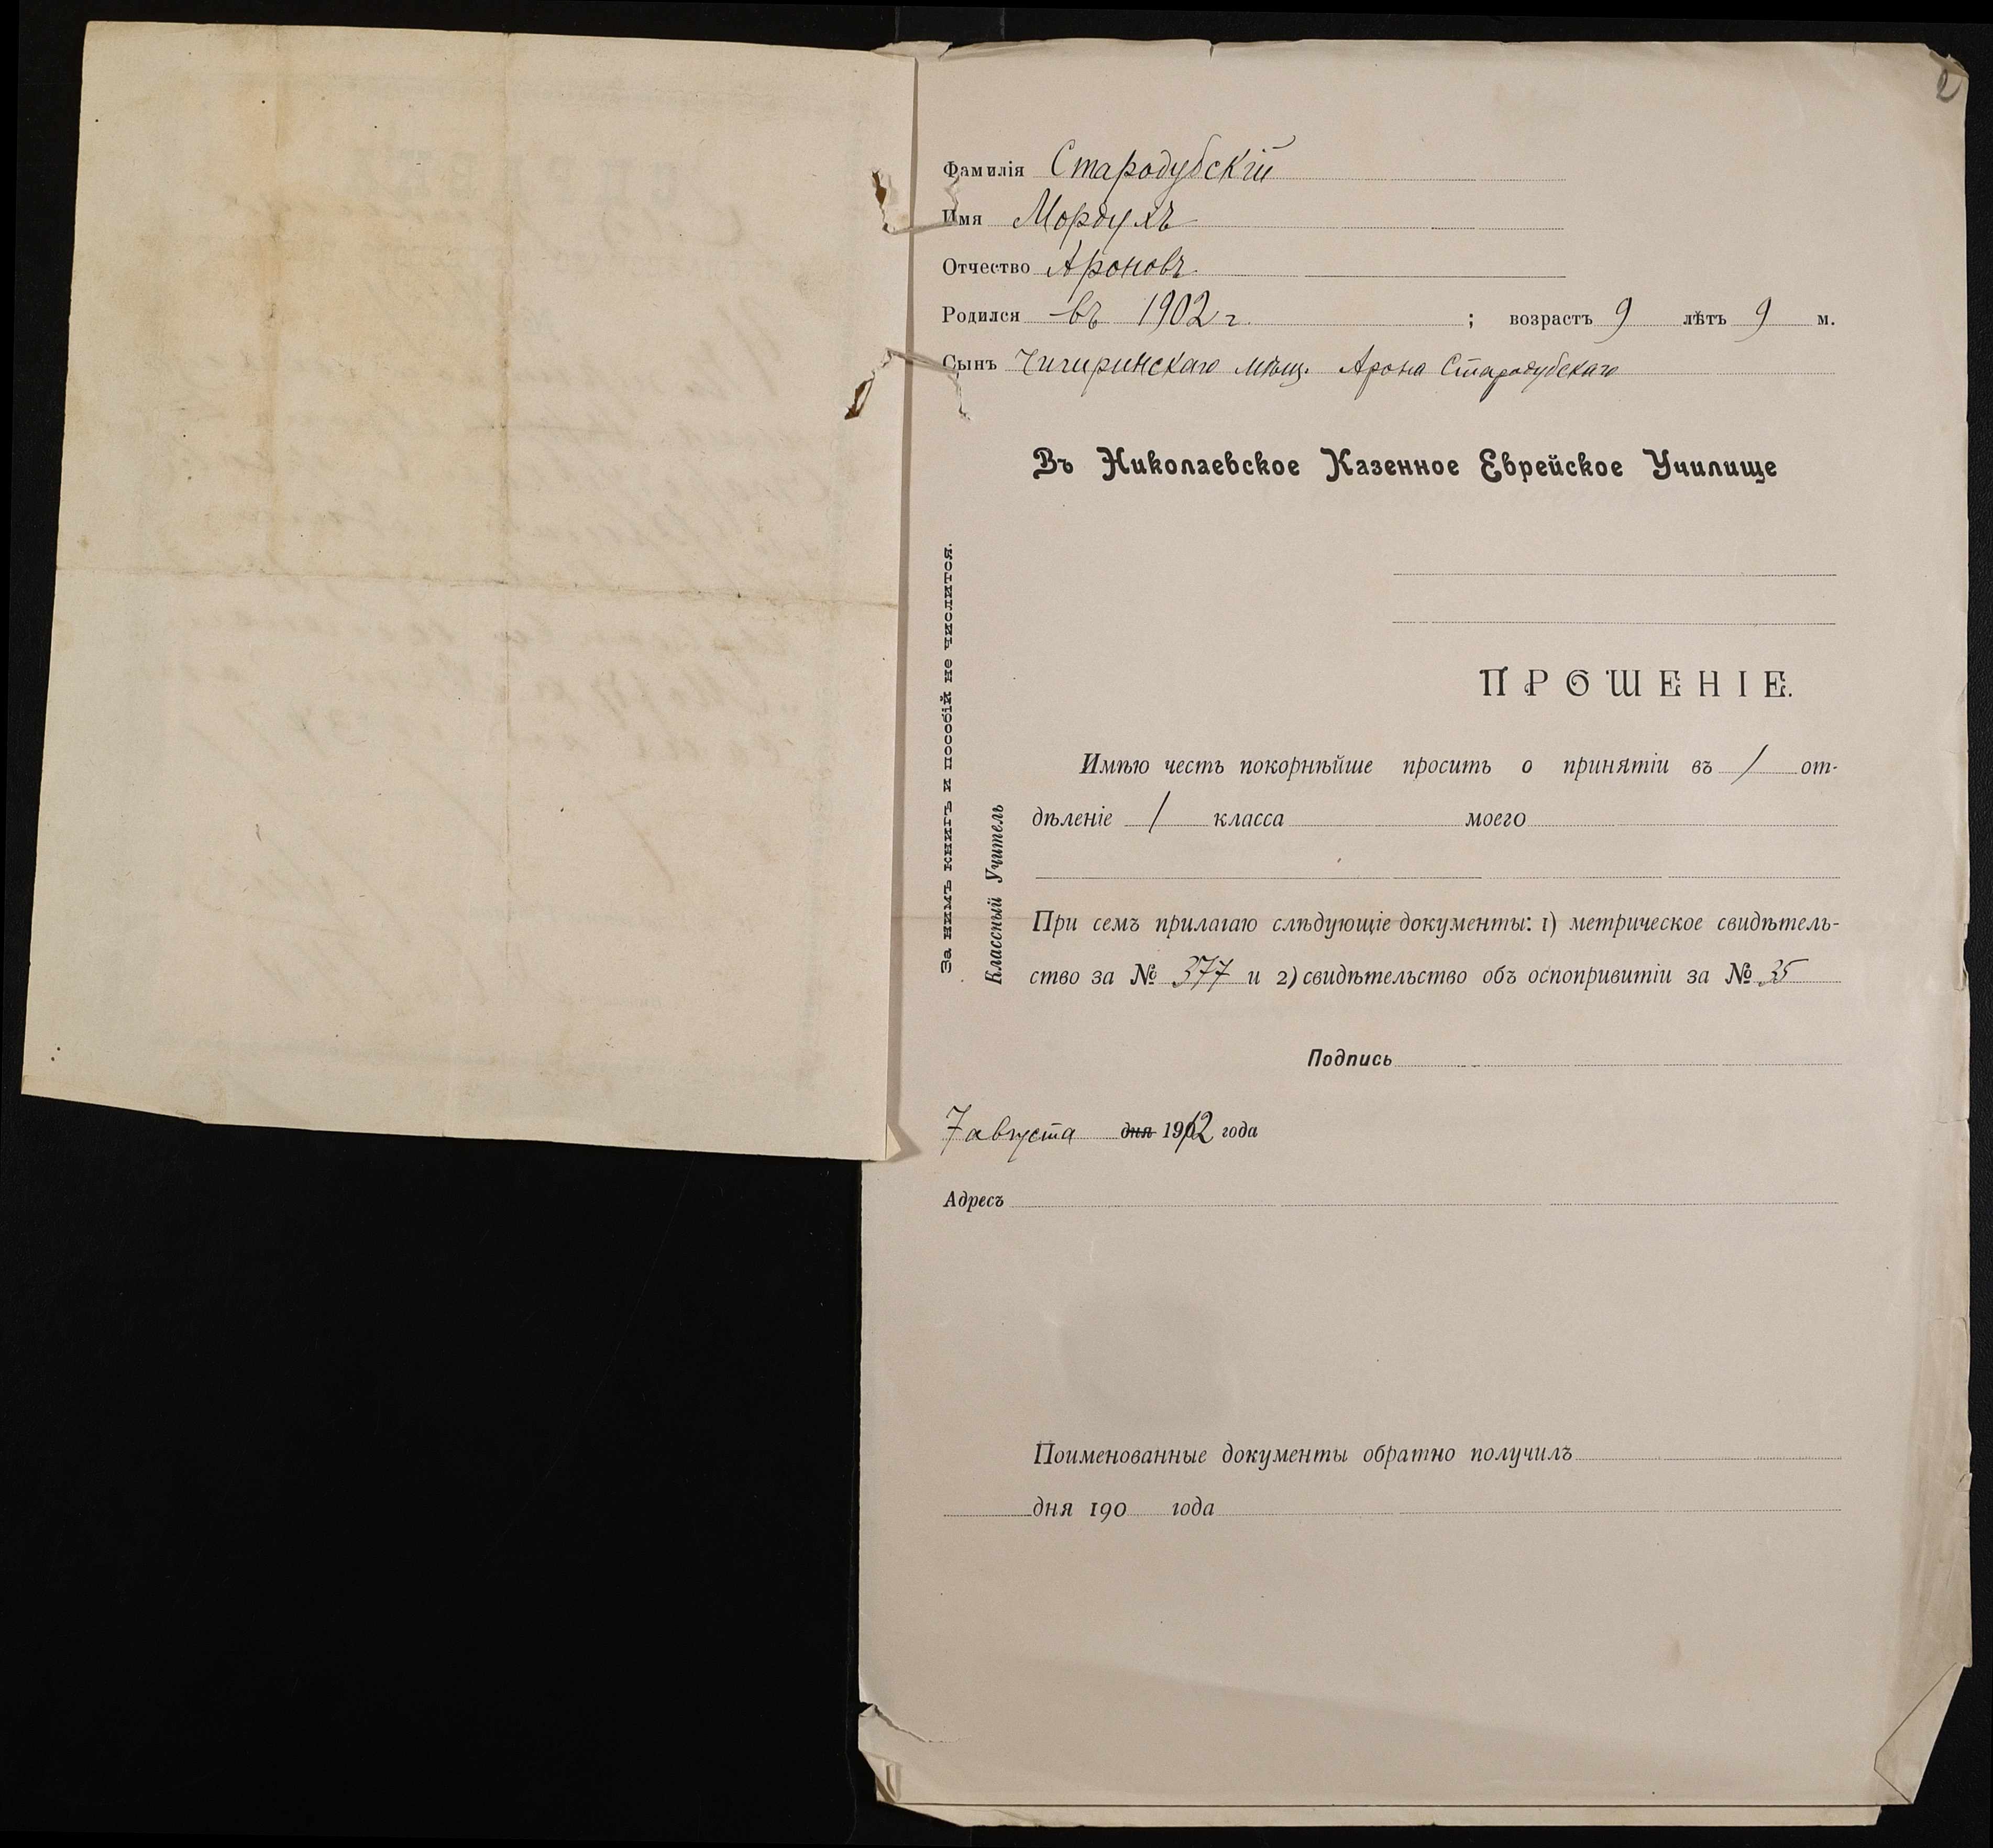 2
Фамилія Стародубскій
Имя Мордухъ
Отчество Ароновъ.
Родился въ 1902 г. ; возрастъ 9 лѣтъ 9 м.
Сынъ Чигиринскаго мѣщ. Арона Стародубскаго
Въ Николаевское Казенное Еврейское Училище
ПРОШЕНІЕ.
Имѣю честь покорнѣйше просить о принятіи въ 1 от-
дѣленіе 1 класса моего
При семъ прилагаю слѣдующіе документы: 1) метрическое свидѣтель-
ство за № 377 и 2) свидѣтельство объ оспопривитіи за № 35
Подпись
7 августа дня 1912 года
Адресъ
Поименованные документы обратно получилъ
дня 190 года
За нимъ книгъ и пособій не числится.
Классный Учитель